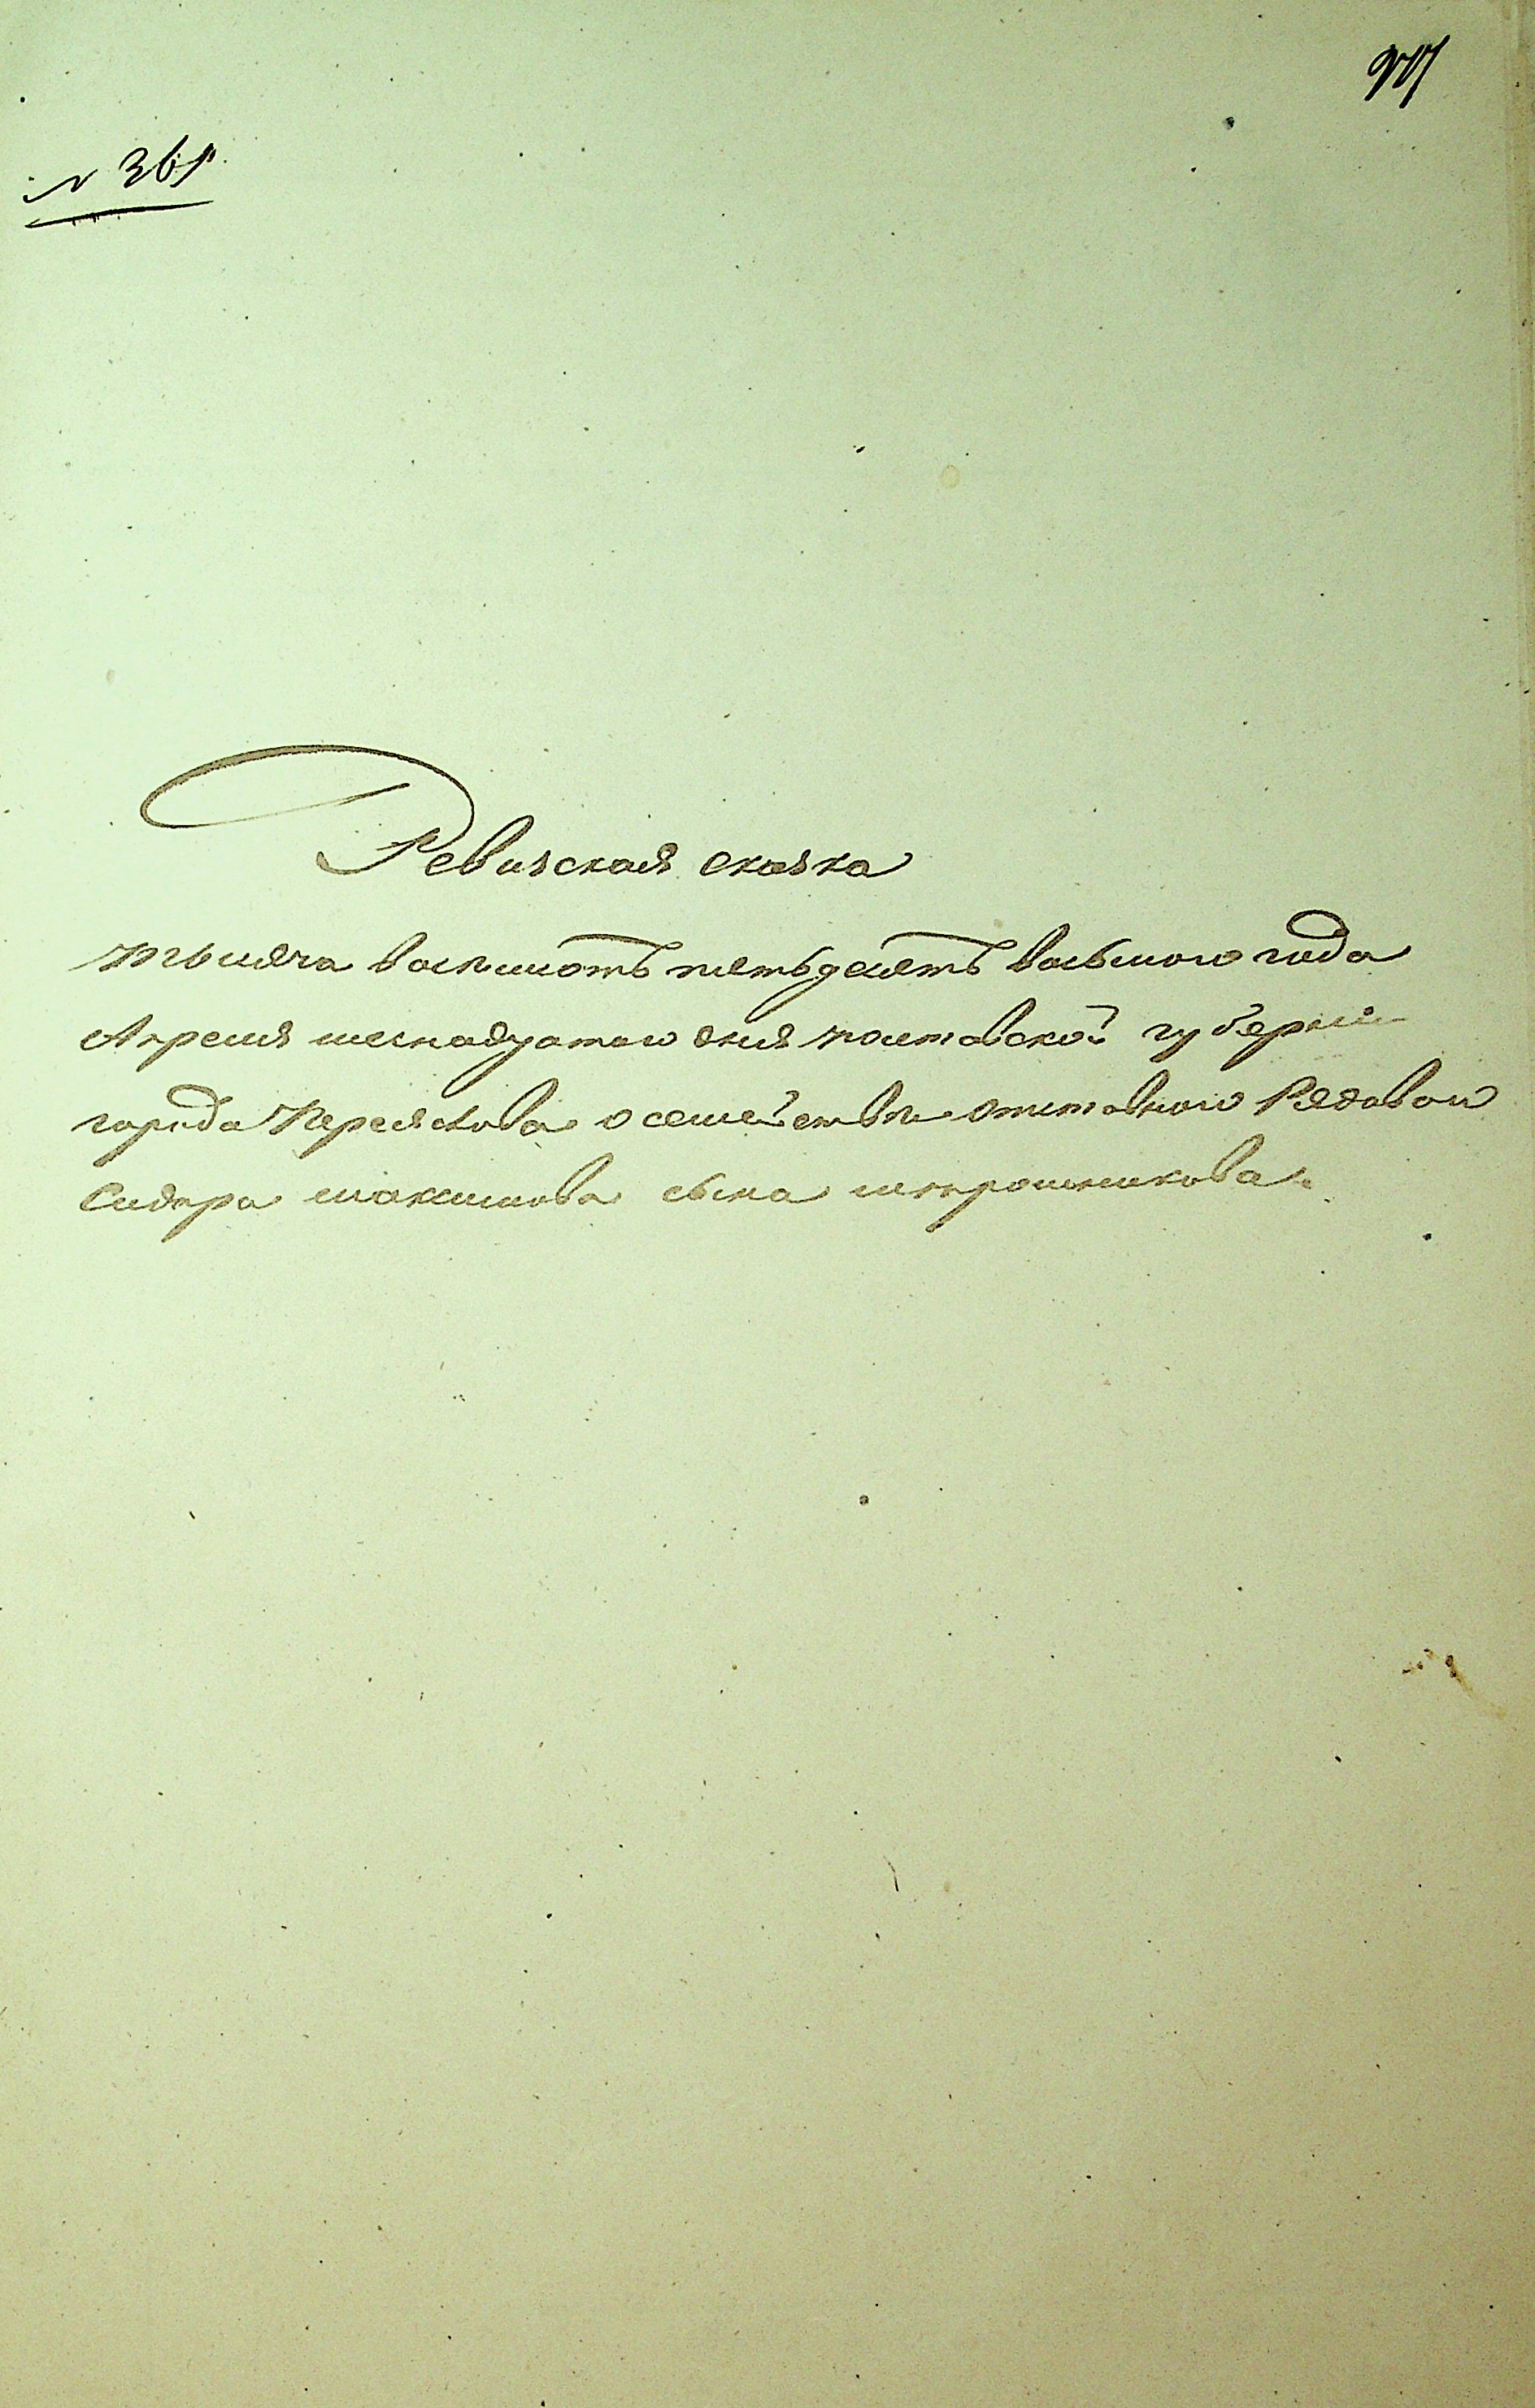 № 361
Ревиская скаска
тысяча восѣмсотъ пятьдесятъ восьмого года
Апреля шеснадцатаго дня полтавской губерніи
города Переяслова о семействѣ отставного Рядового
Сидора максимова сына